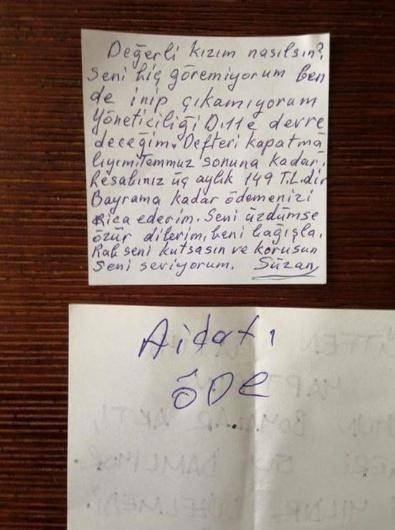 Değerli kızım nasılsın?
Seni hiç göremiyorum ben
de inip çıkamıyorum
Yöneticiliği D.11 e devre
deceğim. Defteri kapatma
lıyım. Temmuz sonuna kadar.
Hesabınız üç aylık 149 TL.dir
Bayrama kadar ödemenizi
Rica ederim. Seni üzdümse
özür dilerim, beni bağışla.
Rab seni kutsasın ve korusun
Seni seviyorum. Süzan
Aidatı
ÖDE